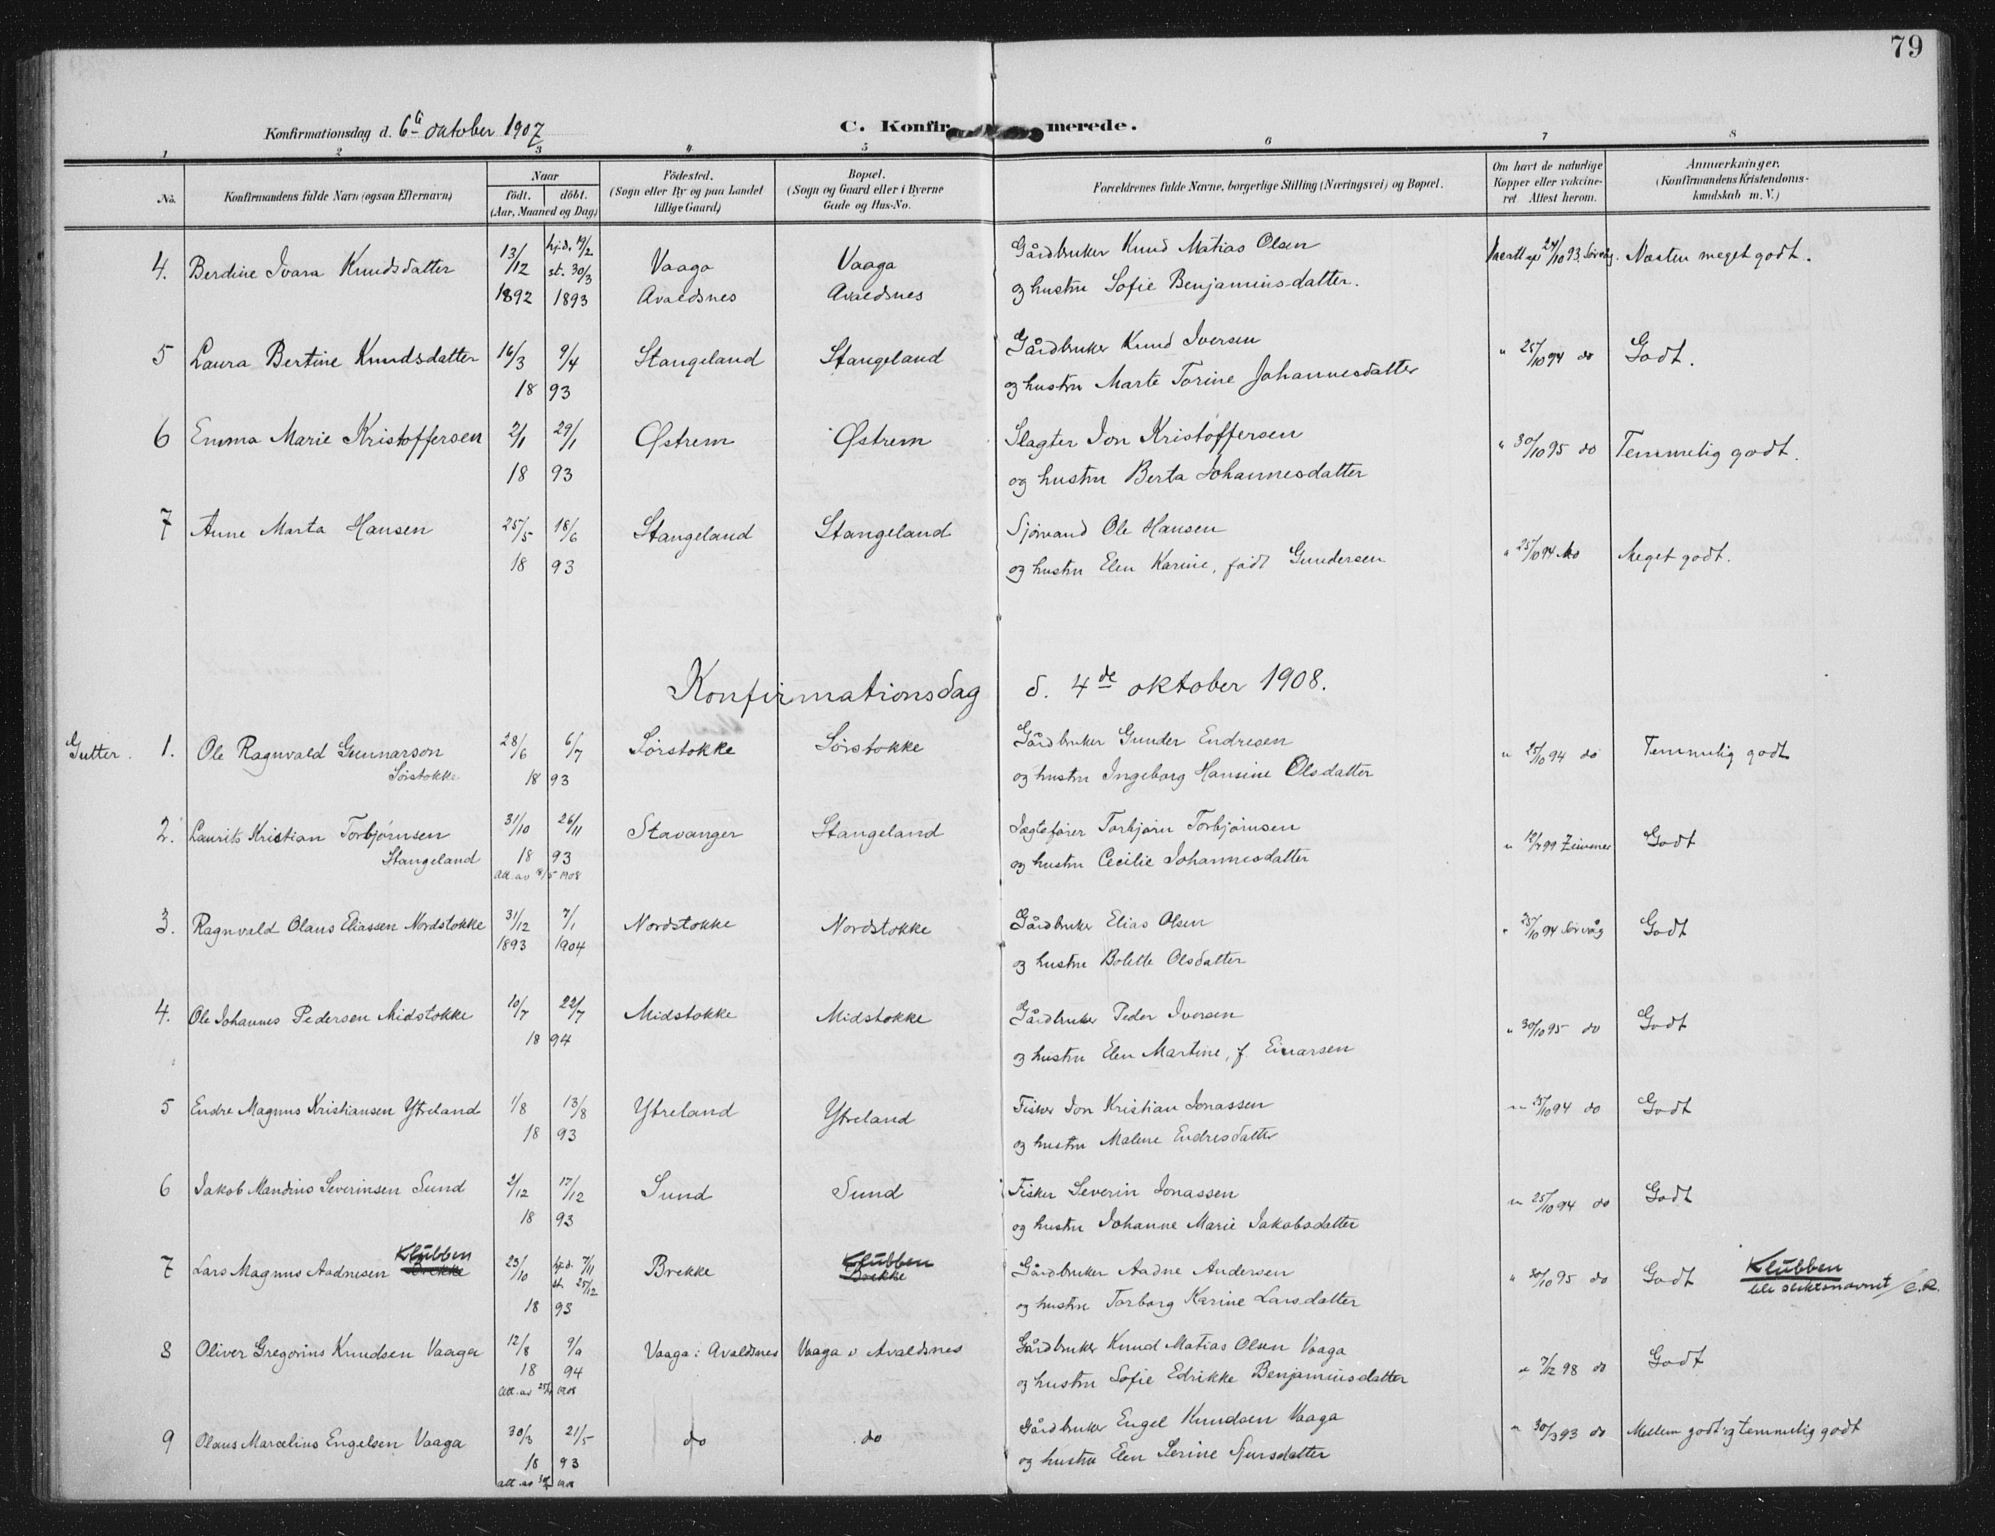 79
Konfirmationsdag d. 6te oktober 1907
C. Konfirmerede.
1 2 3 4 5 6 7 8
No. Konfirmandens fulde Navn (ogsaa Efternavn) Naar födt. döbt. (Aar, Maaned og Dag) Födested. (Sogn eller By og paa Landet tillige Gaard) Bopæl. (Sogn og Gaard eller i Byerne Gade og Hus-No. Forældrenes fulde Navne, borgerlige Stilling (Næringsvei) og Bopæl. Om havt de naturlige Kopper eller vakcineret Attest herom. Anmærkninger. (Konfirmandens Kristendomskundskab m. V.)
4. Berdine Ivara Knudsdatter 13/12 hj.d. st. 30/3 Vaaga Vaaga Gårdbruker Knud Matias Olsen Næsten meget godt.
1892 1893 Avaldsnes Avaldsnes og hustru Sofie Benjaminsdatter.
5 Laura Bertine Knudsdatter 16/3 9/4 Stangeland Stangeland Gårdbruker Knud Iversen " 25/10 94 do Godt.
18 93 og hustru Marte Torine Johannesdatter
6 Emma Marie Kristoffersen 2/1 29/1 Østrem Østrem Slagter Jon Kristoffersen " 30/10 95 do Temmelig godt.
18 93 og hustru Berta Johannesdatter
7 Anne Marta Hansen 25/5 18/6 Stangeland Stangeland Sjømand Ole Hansen " 25/10 94 do Meget godt.
18 93 og hustru Elen Karine, født Gundersen
Konfirmationsdag d. 4de oktober 1908.
Gutter. 1. Ole Ragnvald Gunnarson 28/6 6/7 Sørstokke Sørstokke Gårdbruker Gunder Endresen " 25/10 94 do Temmelig godt
Sørstokke 18 93 og hustru Ingeborg Hansine Olsdatter
2. Laurits Kristian Torbjørnsen 31/10 26/11 Stavanger Stangeland Jægtefører Torbjørn Torbjørnsen Godt
Stangeland 18 93 og hustru Cecilie Johannesdatter
3. Ragnvald Olaus Eliassen Nordstokke 31/12 7/1 Nordstokke Nordstokke Gårdbruker Elias Olsen " 25/10 94 Sørvåg Godt
1893 1904 og hustru Bolette Olsdatter
4. Ole Johannes Pedersen Midstokke 10/7 22/7 Midstokke Midstokke Gårdbruker Peder Iversen " 30/10 95 do Godt
18 94 og hustru Elen Martine, f. Einarsen
5 Endre Magnus Kristiansen Ytreland 1/8 13/8 Ytreland Ytreland Fisker Jon Kristian Jonassen " 25/10 94 do Godt
18 93 og hustru Malene Endresdatter
6 Jakob Mandius Severinsen Sund 2/12 17/12 Sund Sund Fisker Severin Jonassen " 25/10 94 do Godt
18 93 og hustru Johanne Marie Jakobsdatter
7 Lars Magnus Aadnesen Klubben Brekke 23/10 hj.d. 7/11 st. 25/12 Brekke Klubben Brekke Gårdbruker Aadne Andersen " 30/10 95 do Godt Klubben
18 93 og hustru Torborg Karine Larsdatter
8 Oliver Gregorius Knudsen Vaaga 12/8 Vaaga i Avaldsnes Vaaga i Avaldsnes Gårdbruker Knud Matias Olsen Vaaga " 7/12 98 do Godt
18 94 og hustru Sofie Edrikke Benjaminsdatter
9 Olaus Marcelius Engelsen Vaaga 30/3 21/5 do do Gårdbruker Engel Knudsen Vaaga do Mellem godt og temmelig godt
18 93 og hustru Elen Serine Sjursdatter